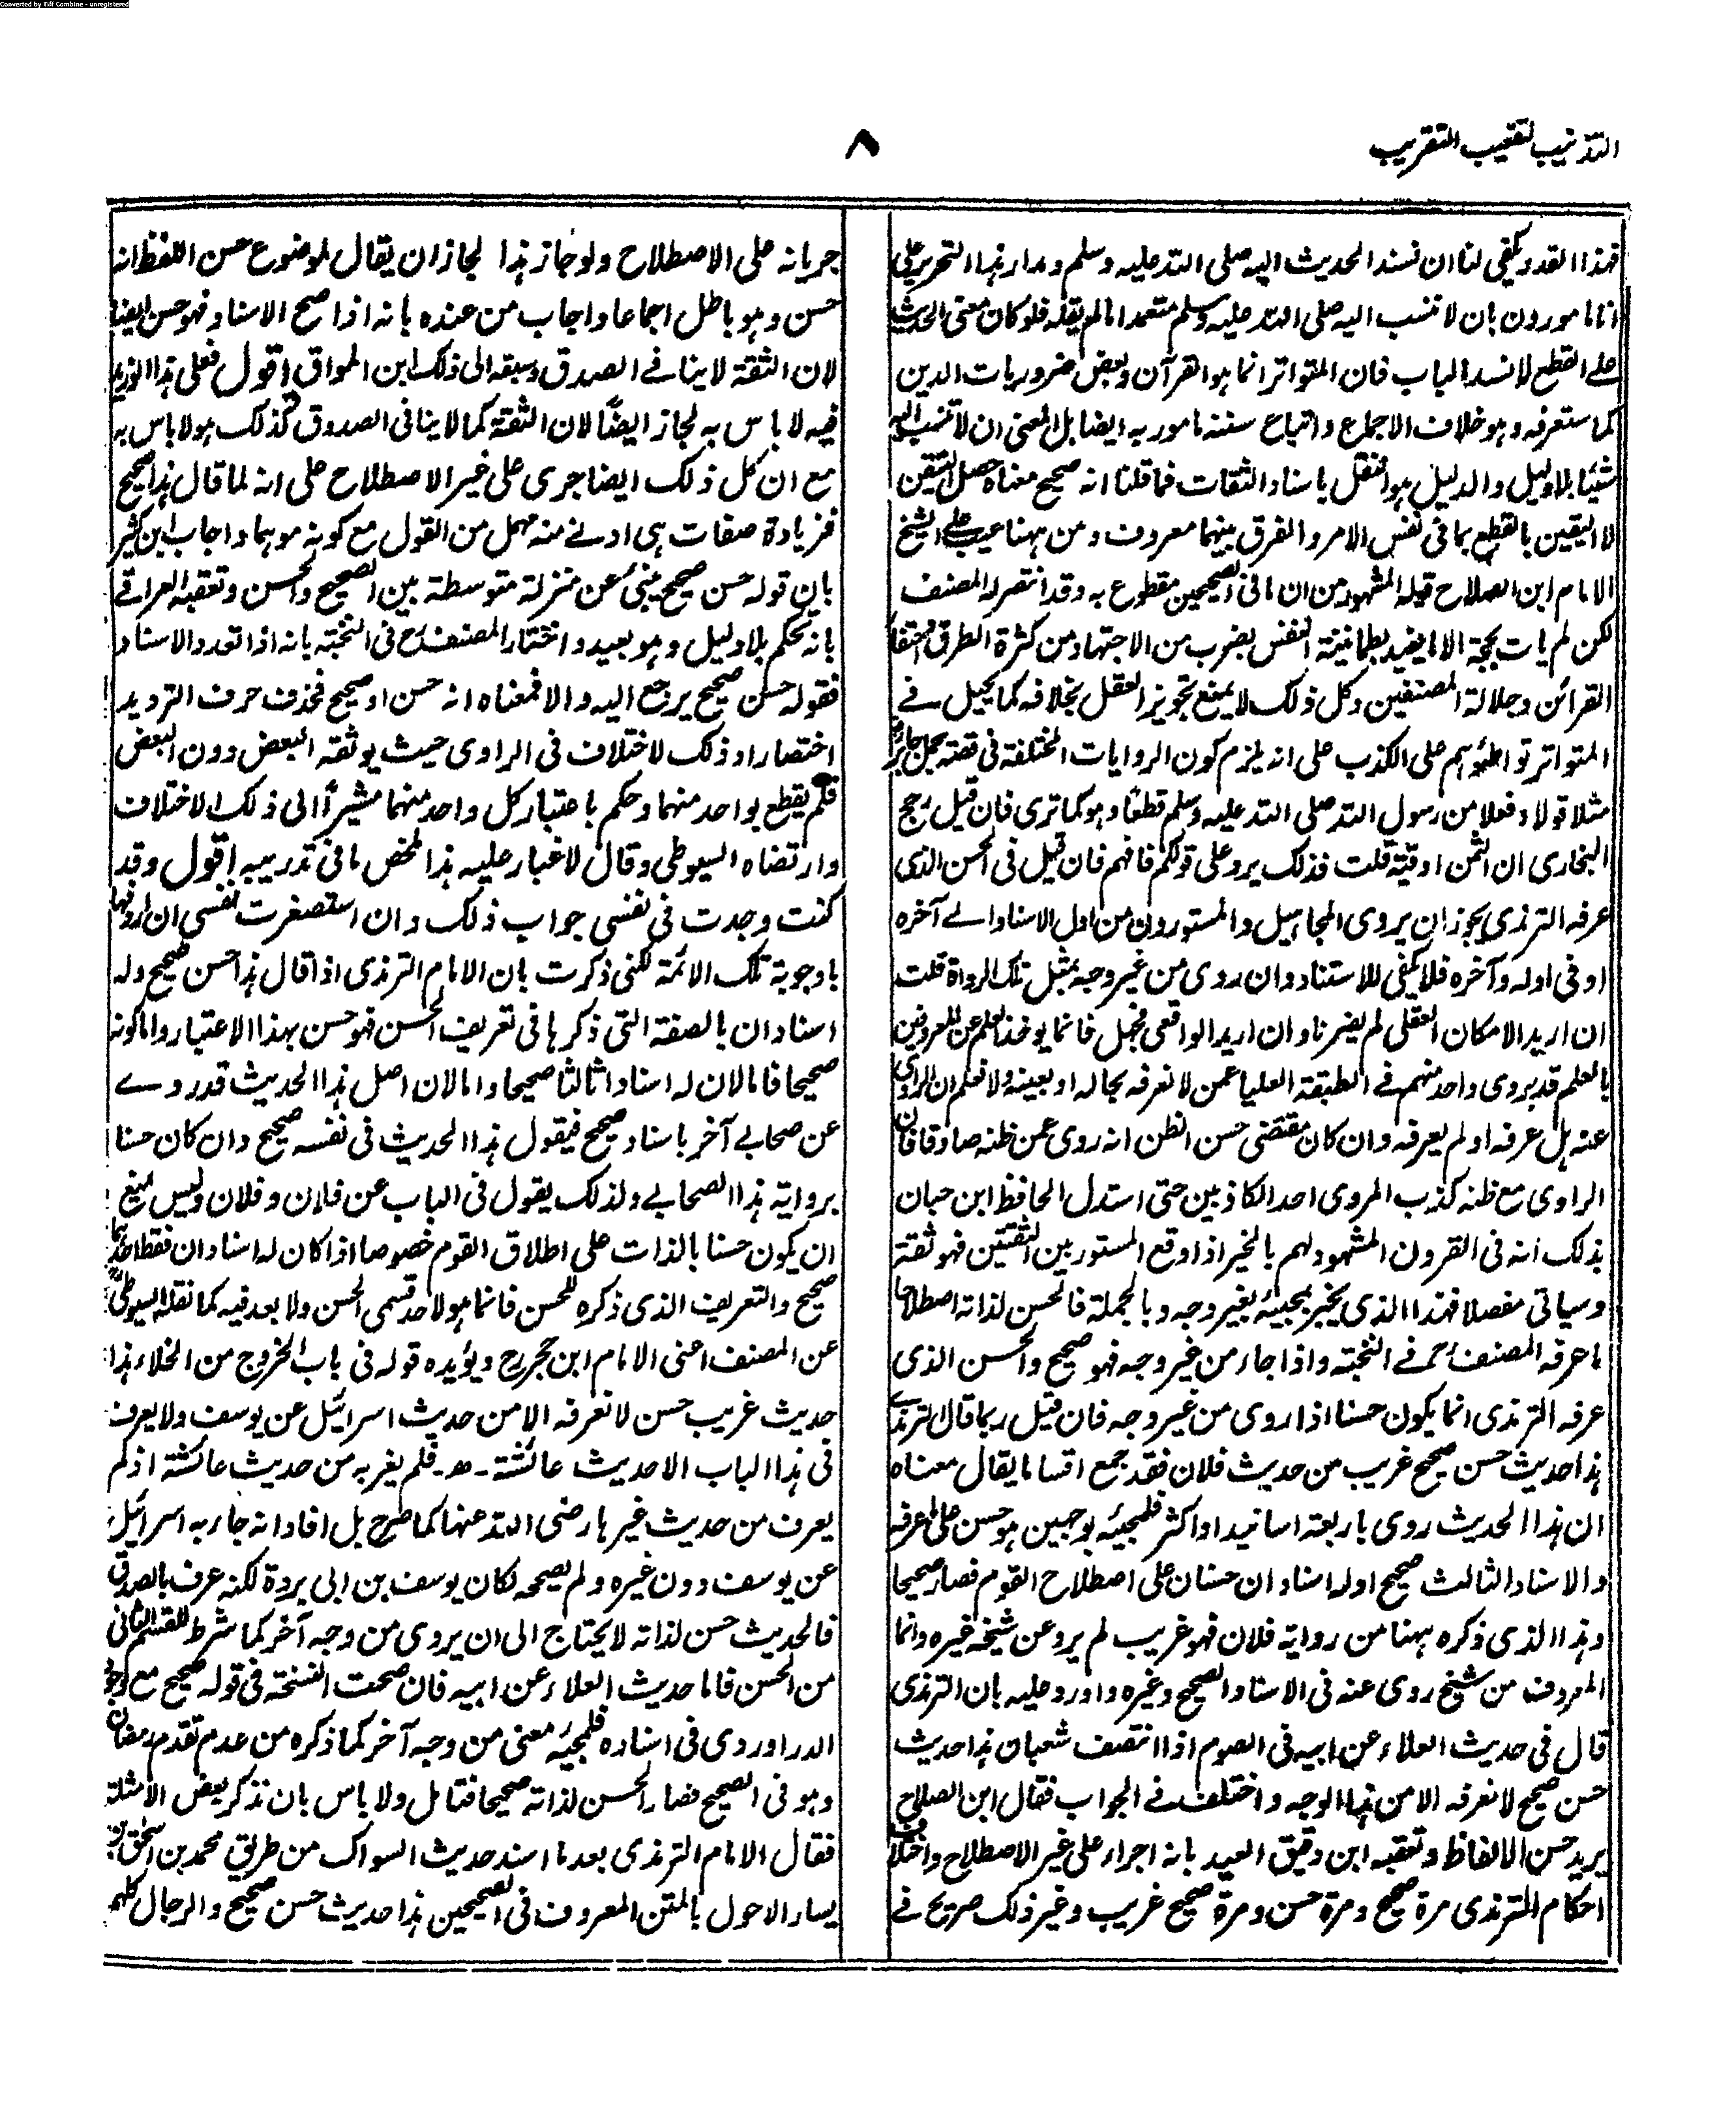 Converted by Tiff Combine - unregistered
التذنيب لتعقيب التقريب
٨
فهذا القدر يكفي لنا ان نسند الحديث اليه صلى الله عليه وسلم ومدار هذا التحرير على
انا مامورون بان لا ننسب اليه صلى الله عليه وسلم متعمدا ما لم يقله فلو كان معنى الحديث
على القطع لانسد الباب فان المتواتر انما هو القرآن وبعض ضروريات الدين
كما ستعرفه وهو خلاف الاجماع واتباع سننه مامور به ايضا بل المعنى ان لا تنسب اليه
شيئا بلا دليل والدليل هو النقل باسناد الثقات فما قلنا انه صحيح معناه حصل التيقن
لا اليقين بالقطع بما فى نفس الامر والفرق بينهما معروف ومن ههنا عيب على الشيخ
الامام ابن الصلاح قيله المشهور من ان ما فى الصحيحين مقطوع به وقد انتصر له المصنف
لكن لم يات بحجة الا ما يفيد بطمانينة النفس بضرب من الاجتهاد من كثرة الطرق واحتفا
القرائن وجلالة المصنفين وكل ذلك لا يمنع تجويز العقل بخلافه كما يحيل فے
المتواتر تواطؤهم على الكذب على انه يلزم كون الروايات المختلفة فى قصة جمل جابر
مثلا قولا وفعلا من رسول الله صلى الله عليه وسلم قطعا وهو كما ترى فان قيل رجح
البخارى ان الثمن اوقية قلت فذلك يرد على قولكم فافهم فان قيل فى الحسن الذى
عرفه الترمذى يجوز ان يروى المجاهيل والمستورون من اول الاسناد الے آخره
او فى اوله وآخره فلا يكفى للاستناد وان روى من غير وجه بمثل تلك الرواة قلت
ان اريد الامكان العقلى لم يضرنا وان اريد الواقعى فجهل فانما يوخذ العلم عن المعروفين
بالعلم قد يروى واحد منهم فے الطبقة العليا عمن لا نعرفه بحاله او بعينه ولا نعلم ان الراوى
عنه هل عرفه او لم يعرفه وان كان مقتضى حسن الظن انه روى عمن ظنه صادقا فان
الراوى مع ظنه كذب المروى احد الكاذبين حتى استدل الحافظ ابن حبان
بذلك انه فى القرون المشهود لهم بالخير اذا وقع المستور بين الثقتين فهو ثقة
وسياتى مفصلا فهذا الذى يخبر بمجيئه بغير وجه وبالجملة فالحسن لذاته اصطلاحا
ما عرفه المصنف رح فے النخبة واذا جاء من غير وجه فهو صحيح والحسن الذى
عرفه الترمذى انما يكون حسنا اذا روى من غير وجه فان قيل ربما قال الترمذى
هذا حديث حسن صحيح غريب من حديث فلان فقد جمع اقساما يقال معناه
ان هذا الحديث روى باربعة اسانيد او اكثر فلمجيئه بوجهين هو حسن على ما عرفه
والاسناد الثالث صحيح او له اسنادان حسنان على اصطلاح القوم فصار صحيحا
وهذا الذى ذكره ههنا من رواية فلان فهو غريب لم يرو عن شيخه غيره وانما
المعروف من شيخ روى عنه فى الاسناد الصحيح وغيره واورد عليه بان الترمذى
قال فى حديث العلاء عن ابيه فى الصوم اذا انتصف شعبان هذا حديث
حسن صحيح لا نعرفه الا من هذا الوجه واختلف فے الجواب فقال ابن الصلاح
يريد حسن الالفاظ وتعقبه ابن دقيق العيد بانه اجراء على غير الاصطلاح واختلاف
احكام الترمذى مرة صحيح ومرة حسن ومرة صحيح غريب وغير ذلك صريح فے
جريانه على الاصطلاح ولو جاز هذا لجاز ان يقال لموضوع حسن اللفظ انه
حسن وهو باطل اجماعا واجاب من عنده بانه اذا صح الاسناد فهو حسن ايضا
لان الثقة لا ينافے الصدق وسبقه الى ذلك ابن المواق اقول فعلى هذا لو زيد
فيه لا باس به لجاز ايضًا لان الثقة كما لا ينافى الصدوق فكذلك هو لا باس به
مع ان كل ذلك ايضا جرى على غير الاصطلاح على انه لما قال هذا صحيح
فزيادة صفات هى ادنے منه مهمل من القول مع كونه موهما واجاب ابن كثير
بان قوله حسن صحيح ينبئ عن منزلة متوسطة بين الصحيح والحسن وتعقبه العراقے
بانه تحكم بلا دليل وهو بعيد واختار المصنف رح فى النخبة بانه اذا تعدد الاسناد
فقوله حسن صحيح يرجع اليه والا فمعناه انه حسن او صحيح فحذف حرف الترديد
اختصارا وذلك لاختلاف فى الراوى حيث يوثقه البعض دون البعض
فلم يقطع بواحد منهما وحكم باعتبار كل واحد منهما مشيرًا الى ذلك الاختلاف
وارتضاه السيوطى وقال لا غبار عليه هذا ملخص ما فى تدريبه اقول وقد
كنت وجدت فى نفسى جواب ذلك وان استصغرت نفسى ان اردفها
باجوبة تلك الائمة لكنى ذكرت بان الامام الترمذى اذا قال هذا حسن صحيح وله
اسنادان بالصفة التى ذكرها فى تعريف الحسن فهو حسن بهذا الاعتبار واما كونه
صحيحا فاما لان له اسنادا ثالثا صحيحا واما لان اصل هذا الحديث قد روے
عن صحابے آخر باسناد صحيح فيقول هذا الحديث فى نفسه صحيح وان كان حسنا
برواية هذا الصحابے ولذلك يقول فى الباب عن فلان وفلان وليس يمنع
ان يكون حسنا بالذات على اطلاق القوم خصوصا اذا كان له اسنادان فقط احدهما
صحيح والتعريف الذى ذكره للحسن فانما هو لاحد قسمى الحسن ولا بعد فيه كما نقله السيوطى
عن المصنف اعنى الامام ابن حجر رح ويؤيده قوله فى باب الخروج من الخلاء هذا
حديث غريب حسن لا نعرفه الا من حديث اسرائيل عن يوسف ولا يعرف
فى هذا الباب الا حديث عائشة -ھ- فلم يغربه من حديث عائشة اذ لم
يعرف من حديث غيرها رضى الله عنها كما صرح بل افاد انه جاء به اسرائيل
عن يوسف دون غيره ولم يصححه لكان يوسف بن ابى بردة لكنه عرف بالصدق
فالحديث حسن لذاته لا يحتاج الى ان يروى من وجه آخر كما شرط للقسم الثانى
من الحسن فاما حديث العلاء عن ابيه فان صحت النسخة فى قوله صحيح مع وجود
الدراوردى فى اسناده فلمجيئه معنى من وجه آخر كما ذكره من عدم تقدم رمضان
وهو فى الصحيح فصار الحسن لذاته صحيحا فتامل ولا باس بان نذكر بعض الامثلة
فقال الامام الترمذى بعد ما اسند حديث السواك من طريق محمد بن اسحق بن
يسار الاحول بالمتن المعروف فى الصحيحين هذا حديث حسن صحيح والرجال كلهم